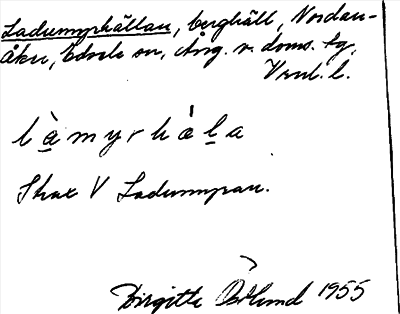 Ladumyrhällan, berghäll, Nordan-
åker, Edsele sn, Ång. v. doms. tg,
Vnl. l.
l à m y r h ä l a
Strax V Ladumyran.
Birgitte Östlund 1955